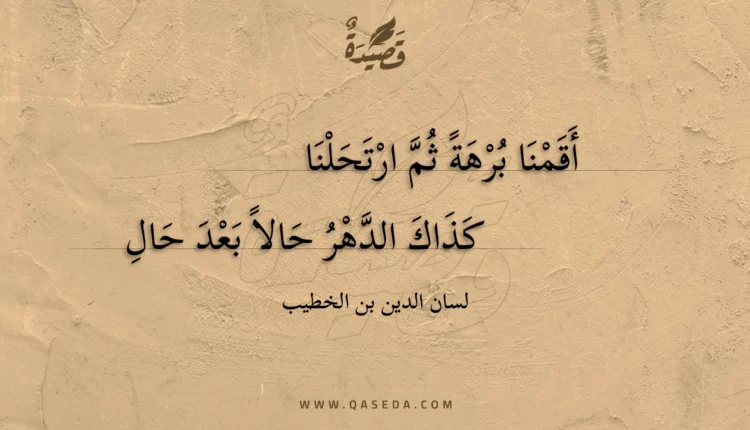 قَصِيدَةٌ
أَقَمْنَا بُرْهَةً ثُمَّ ارْتَحَلْنَا
كَذَاكَ الدَّهْرُ حَالاً بَعْدَ حَالِ
لسان الدين بن الخطيب
WWW.QASEDA.COM